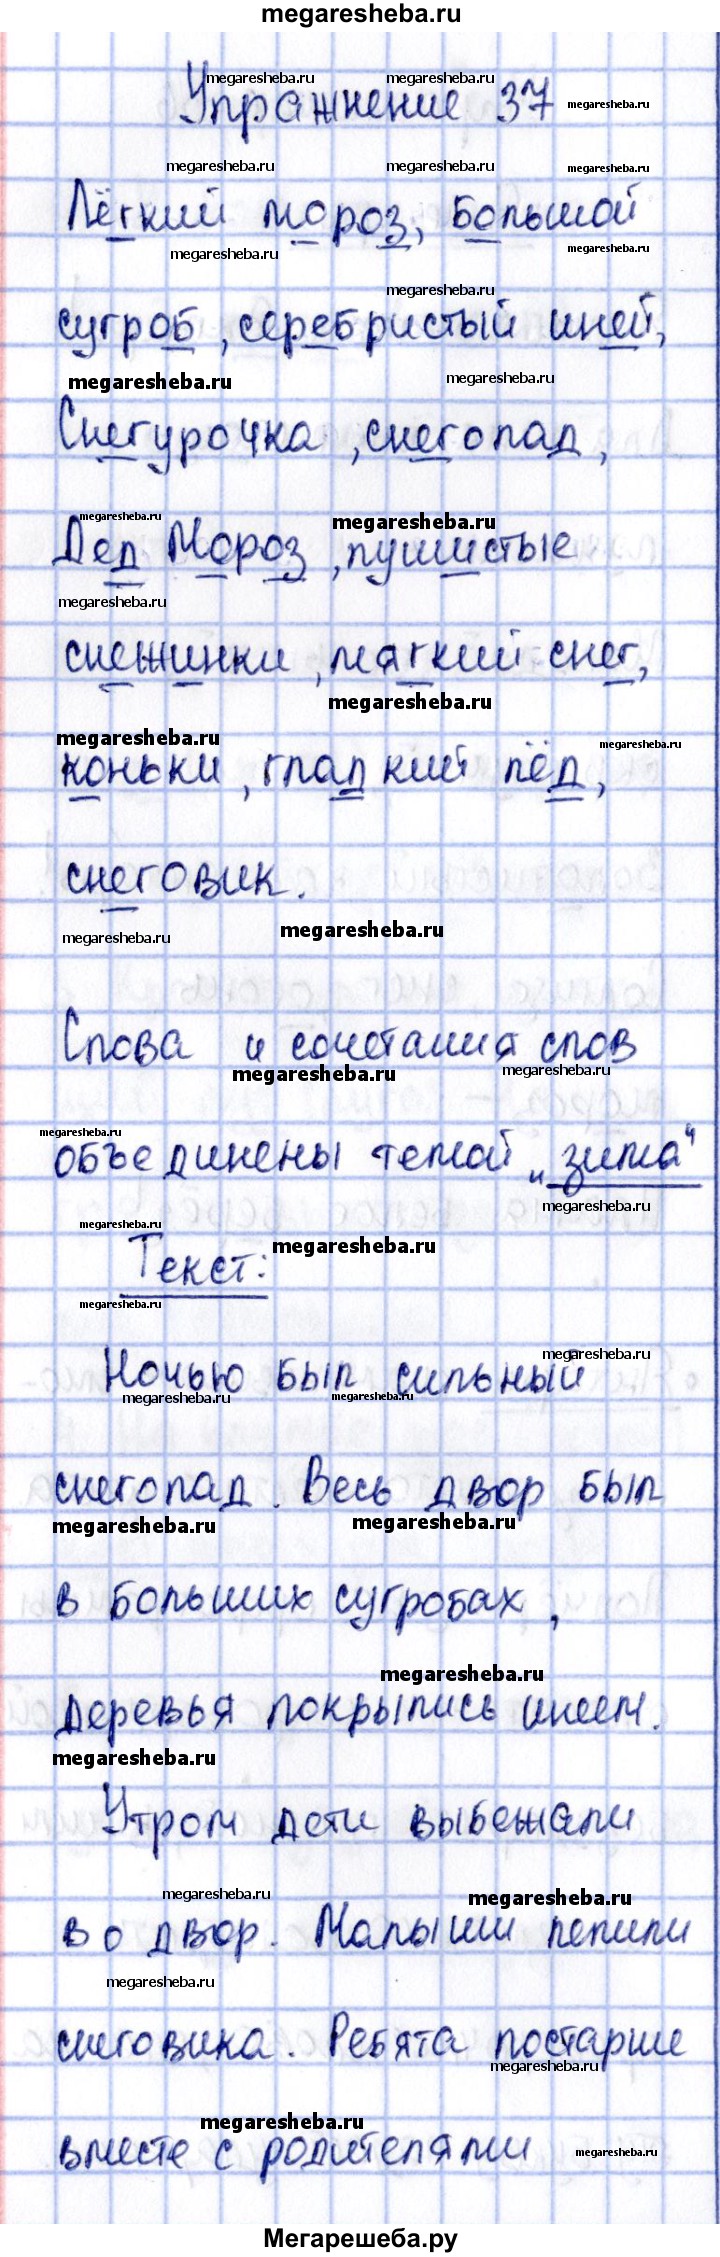 megaresheba.ru
megaresheba.ru megaresheba.ru
Упражнение 37 megaresheba.ru
megaresheba.ru megaresheba.ru megaresheba.ru
Лёгкий мороз, большой
megaresheba.ru megaresheba.ru
megaresheba.ru
сугроб, серебристый иней,
megaresheba.ru megaresheba.ru
Снегурочка, снегопад,
megaresheba.ru megaresheba.ru
Дед Мороз, пушистые
megaresheba.ru
снежинки, мягкий снег,
megaresheba.ru
megaresheba.ru megaresheba.ru
коньки, гладкий лёд,
снеговик.
megaresheba.ru megaresheba.ru
Слова и сочетания слов
megaresheba.ru megaresheba.ru
megaresheba.ru
объединены темой „зима“
megaresheba.ru
megaresheba.ru megaresheba.ru
Текст:
megaresheba.ru
megaresheba.ru
Ночью был сильный
megaresheba.ru megaresheba.ru
снегопад. Весь двор был
megaresheba.ru megaresheba.ru
в больших сугробах,
megaresheba.ru
деревья покрылись инеем.
megaresheba.ru
Утром дети выбежали
megaresheba.ru megaresheba.ru
во двор. Малыши лепили
megaresheba.ru
снеговика. Ребята постарше
megaresheba.ru
megaresheba.ru
вместе с родителями megaresheba.ru
Мегарешеба.ру